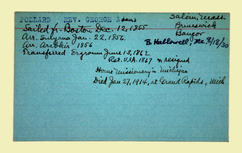 POLLARD REV. GEORGE Salem, Mass.
Sailed fr. Boston Dec. 12, 1855 Brunswick
Arr. Smyrna Jan. 22, 1856. Bangor
Arr. Arabkir 1856 B. Hallowell, Me.
Transferred Erzroum June 12, 1862
Ret. U.S.A. 1867 & resigned
Home Missionary in Michigan
Died Jan 27, 1914, at Grand Rapids, Mich